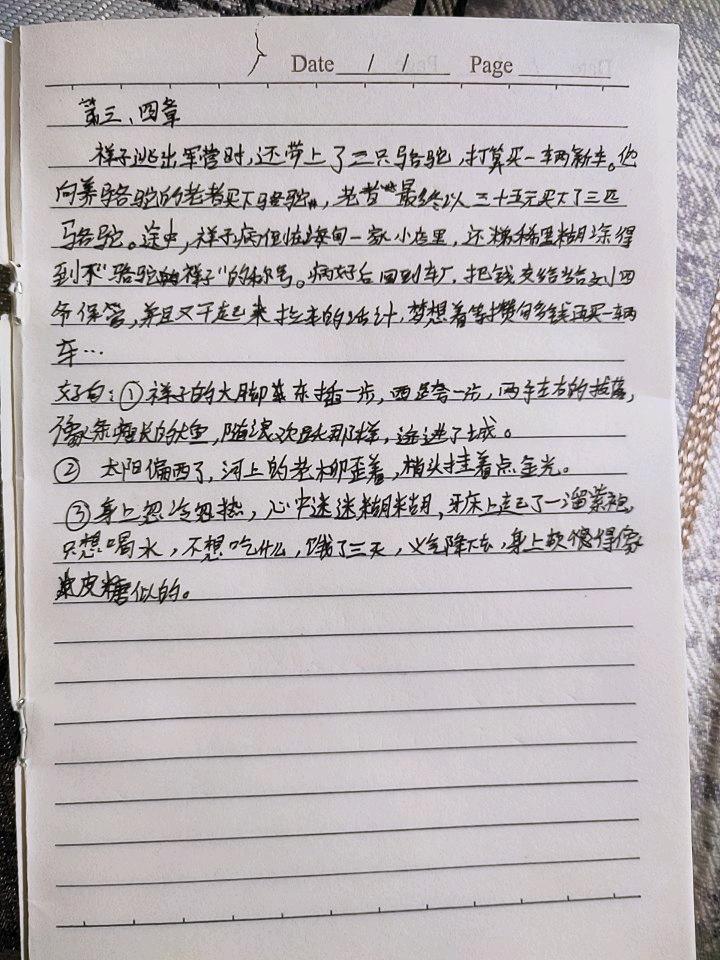 Date / / Page
第三、四章
祥子逃出军营时,还带上了三只骆驼,打算买一辆新车。他
向养骆驼的老者买下骆驼,老者最终以三十五元买下了三匹
骆驼。途中,祥子病倒在海甸一家小店里,还稀里糊涂得
到了"骆驼祥子"的称号。病好后回到车厂,把钱交给刘四
爷保管,并且又干起来拉车的活计,梦想着等攒够多钱再买一辆
车…
好句:①祥子的大脚东插一步,西跨一步,两手左右的拨落,
像条瘦长的大鱼,随浪欢跃那样,进了城。
② 太阳偏西了,河上的老柳歪着,梢头挂着点金光。
③身上忽冷忽热,心中迷迷糊糊,牙床上起了一溜紫泡,
只想喝水,不想吃什么,饿了三天,火气降下去,身上软得像
皮糖似的。